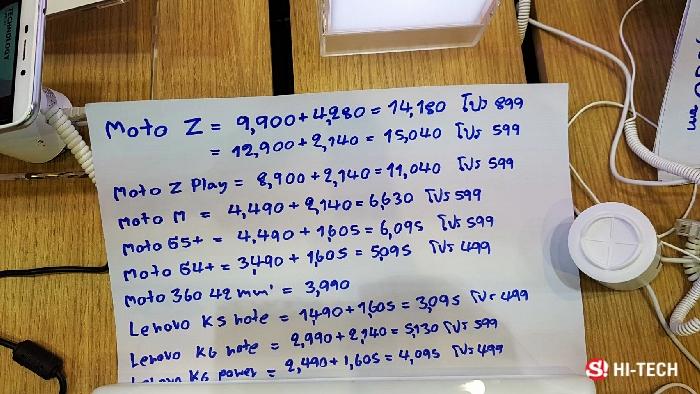 TECHNOLOGY
Moto Z = 9,900+4,280 = 14,180 โปร 899
= 12,900+2,140 = 15,040 โปร 599
Moto Z Play = 8,900+2,140=11,040 โปร 599
Moto M = 4,490+2,140=6,630 โปร 599
Moto G5+ = 4,490+1,605=6,095 โปร 599
Moto G4+ = 3,490+1,605=5,095 โปร 499
Moto 360 42 mm' = 3,990
Lenovo K5 note = 1,490+1,605=3,095 โปร 499
Lenovo K6 note = 2,990+2,140=5,130 โปร 599
Lenovo K6 power = 2,490+1,605=4,095 โปร 499
S! HI-TECH